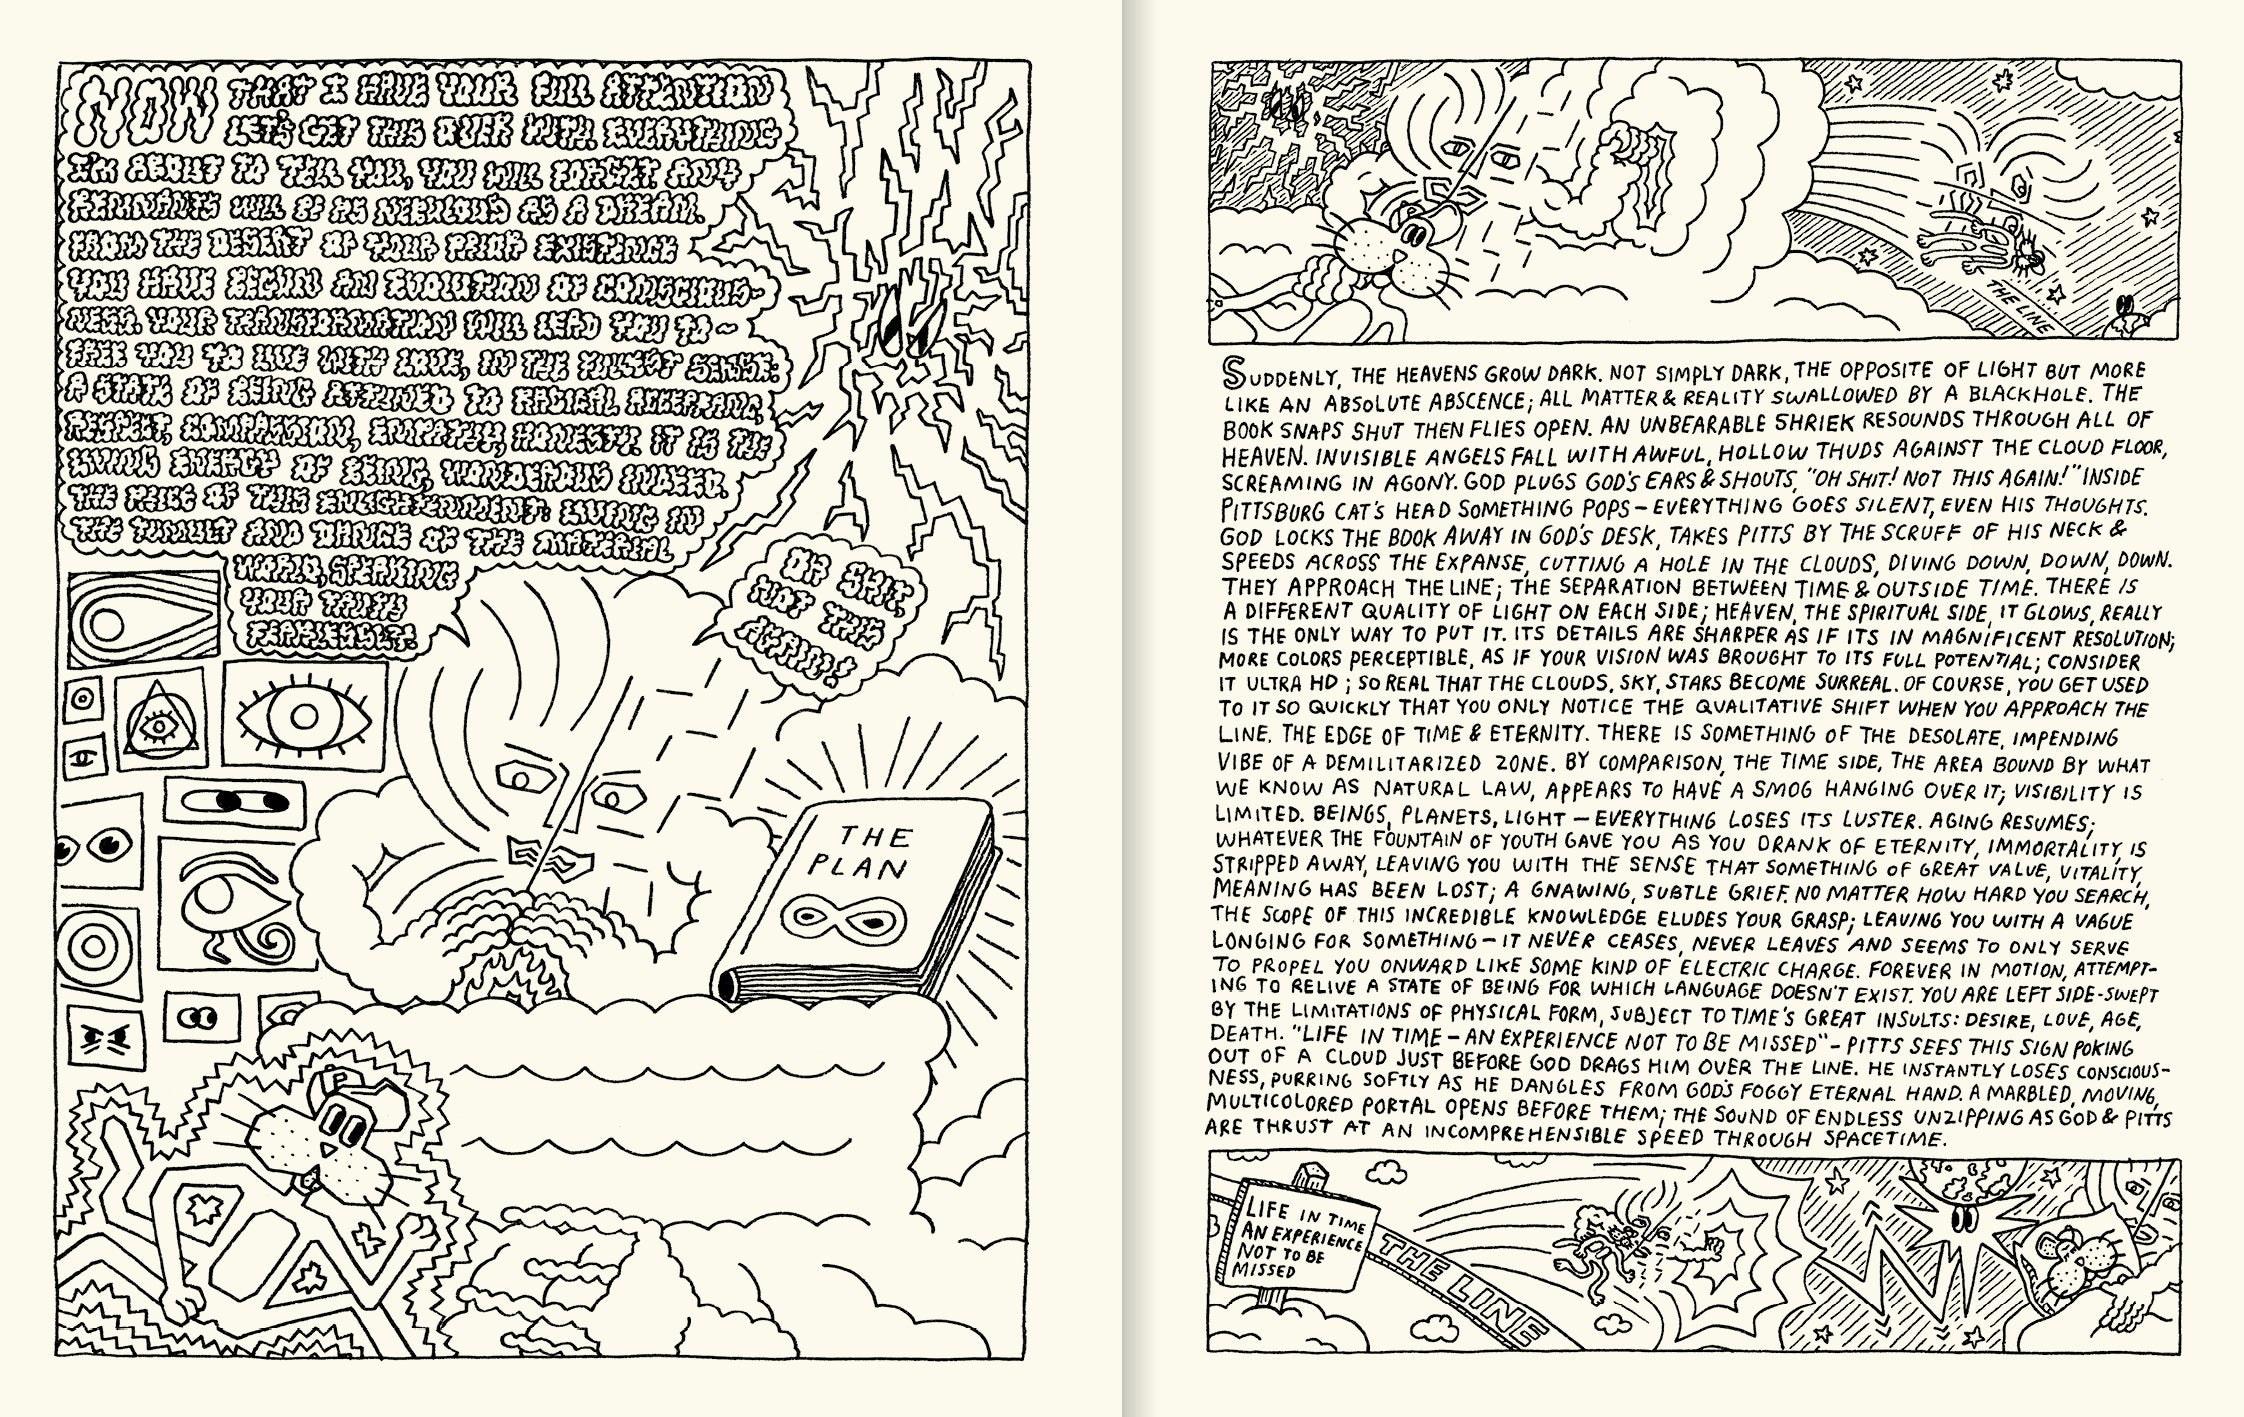 NOW THAT I HAVE YOUR FULL ATTENTION
LET'S GET THIS OVER WITH. EVERYTHING
I'M ABOUT TO TELL YOU, YOU WILL FORGET. ANY
REMNANTS WILL BE AS NEBULOUS AS A DREAM.
FROM THE DESERT OF YOUR PRIOR EXISTENCE
YOU HAVE BEGUN AN EVOLUTION OF CONSCIOUS-
NESS. YOUR TRANSFORMATION WILL LEAD YOU TO~
FREE YOU TO LIVE WITH LOVE, IN THE FULLEST SENSE:
A STATE OF BEING ATTUNED TO RADICAL ACCEPTANCE,
RESPECT, COMPASSION, EMPATHY, HONESTY. IT IS THE
LIVING ENERGY OF BEING, WONDEROUS INDEED.
THE PRICE OF THIS ENLIGHTENMENT: LIVING IN
THE TUMULT AND DANGER OF THE MATERIAL
WORLD, SPEAKING
YOUR TRUTH
FEARLESSLY.
OH SHIT,
NOT THIS
AGAIN!
THE
PLAN
P
THE LINE
SUDDENLY, THE HEAVENS GROW DARK. NOT SIMPLY DARK, THE OPPOSITE OF LIGHT BUT MORE
LIKE AN ABSOLUTE ABSCENCE; ALL MATTER & REALITY SWALLOWED BY A BLACKHOLE. THE
BOOK SNAPS SHUT THEN FLIES OPEN. AN UNBEARABLE SHRIEK RESOUNDS THROUGH ALL OF
HEAVEN. INVISIBLE ANGELS FALL WITH AWFUL, HOLLOW THUDS AGAINST THE CLOUD FLOOR,
SCREAMING IN AGONY. GOD PLUGS GOD'S EARS & SHOUTS, "OH SHIT! NOT THIS AGAIN!" INSIDE
PITTSBURG CAT'S HEAD SOMETHING POPS - EVERYTHING GOES SILENT, EVEN HIS THOUGHTS.
GOD LOCKS THE BOOK AWAY IN GOD'S DESK, TAKES PITTS BY THE SCRUFF OF HIS NECK &
SPEEDS ACROSS THE EXPANSE, CUTTING A HOLE IN THE CLOUDS, DIVING DOWN, DOWN, DOWN.
THEY APPROACH THE LINE; THE SEPARATION BETWEEN TIME & OUTSIDE TIME. THERE IS
A DIFFERENT QUALITY OF LIGHT ON EACH SIDE; HEAVEN, THE SPIRITUAL SIDE, IT GLOWS, REALLY
IS THE ONLY WAY TO PUT IT. ITS DETAILS ARE SHARPER AS IF ITS IN MAGNIFICENT RESOLUTION;
MORE COLORS PERCEPTIBLE, AS IF YOUR VISION WAS BROUGHT TO ITS FULL POTENTIAL; CONSIDER
IT ULTRA HD; SO REAL THAT THE CLOUDS, SKY, STARS BECOME SURREAL. OF COURSE, YOU GET USED
TO IT SO QUICKLY THAT YOU ONLY NOTICE THE QUALITATIVE SHIFT WHEN YOU APPROACH THE
LINE. THE EDGE OF TIME & ETERNITY. THERE IS SOMETHING OF THE DESOLATE, IMPENDING
VIBE OF A DEMILITARIZED ZONE. BY COMPARISON, THE TIME SIDE, THE AREA BOUND BY WHAT
WE KNOW AS NATURAL LAW, APPEARS TO HAVE A SMOG HANGING OVER IT; VISIBILITY IS
LIMITED. BEINGS, PLANETS, LIGHT - EVERYTHING LOSES ITS LUSTER. AGING RESUMES;
WHATEVER THE FOUNTAIN OF YOUTH GAVE YOU AS YOU DRANK OF ETERNITY, IMMORTALITY, IS
STRIPPED AWAY, LEAVING YOU WITH THE SENSE THAT SOMETHING OF GREAT VALUE, VITALITY,
MEANING HAS BEEN LOST; A GNAWING, SUBTLE GRIEF. NO MATTER HOW HARD YOU SEARCH,
THE SCOPE OF THIS INCREDIBLE KNOWLEDGE ELUDES YOUR GRASP; LEAVING YOU WITH A VAGUE
LONGING FOR SOMETHING - IT NEVER CEASES, NEVER LEAVES AND SEEMS TO ONLY SERVE
TO PROPEL YOU ONWARD LIKE SOME KIND OF ELECTRIC CHARGE. FOREVER IN MOTION, ATTEMPT-
ING TO RELIVE A STATE OF BEING FOR WHICH LANGUAGE DOESN'T EXIST. YOU ARE LEFT SIDE-SWEPT
BY THE LIMITATIONS OF PHYSICAL FORM, SUBJECT TO TIME'S GREAT INSULTS: DESIRE, LOVE, AGE,
DEATH. "LIFE IN TIME - AN EXPERIENCE NOT TO BE MISSED" - PITTS SEES THIS SIGN POKING
OUT OF A CLOUD JUST BEFORE GOD DRAGS HIM OVER THE LINE. HE INSTANTLY LOSES CONSCIOUS-
NESS, PURRING SOFTLY AS HE DANGLES FROM GOD'S FOGGY ETERNAL HAND. A MARBLED, MOVING,
MULTICOLORED PORTAL OPENS BEFORE THEM; THE SOUND OF ENDLESS UNZIPPING AS GOD & PITTS
ARE THRUST AT AN INCOMPREHENSIBLE SPEED THROUGH SPACETIME.
LIFE IN TIME
AN EXPERIENCE
NOT TO BE
MISSED
THE LINE